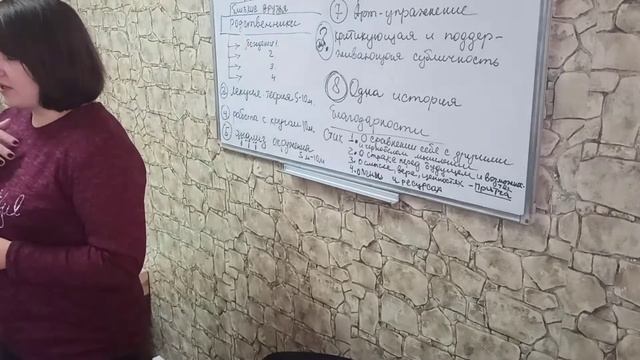 Близкие друзья
Родственники
1
2
3.
4
③ лекция теория 5-10м.
④ работа с кругами 10м
⑤ анализ окружения
5м-10м
⑦ Арт-упражнение
критикующая и поддер-
живающая субличность
⑧ Одна история
благодарности
Стих 1. О сравнении себе с другими
и шаблонном мышлении
2. О страхе перед будущем и возможно-
3. О смысле, вере, ценностях - Притча
4. и ресурсах